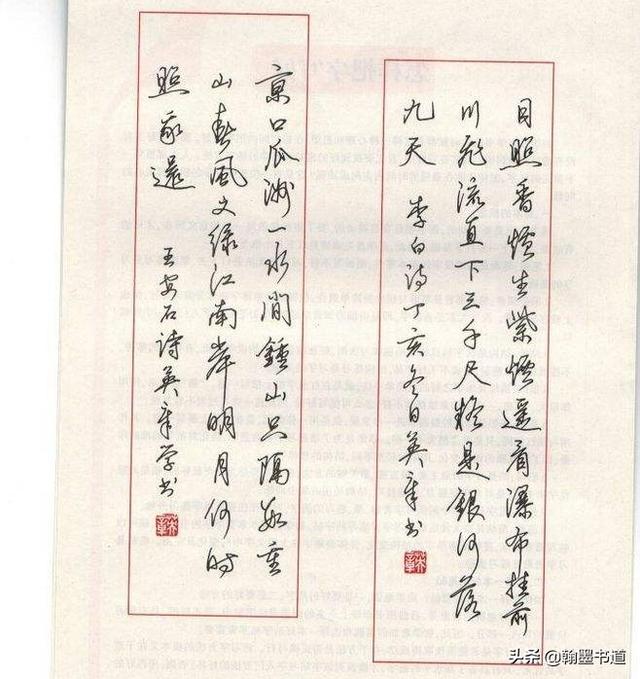 日照香炉生紫烟遥看瀑布挂前
川飞流直下三千尺疑是银河落
九天 李白诗丁亥冬日英章书
京口瓜洲一水间鍾山只隔数重
山春风又绿江南岸明月何时
照我還 王安石詩英章学书
头条 @翰墨书道